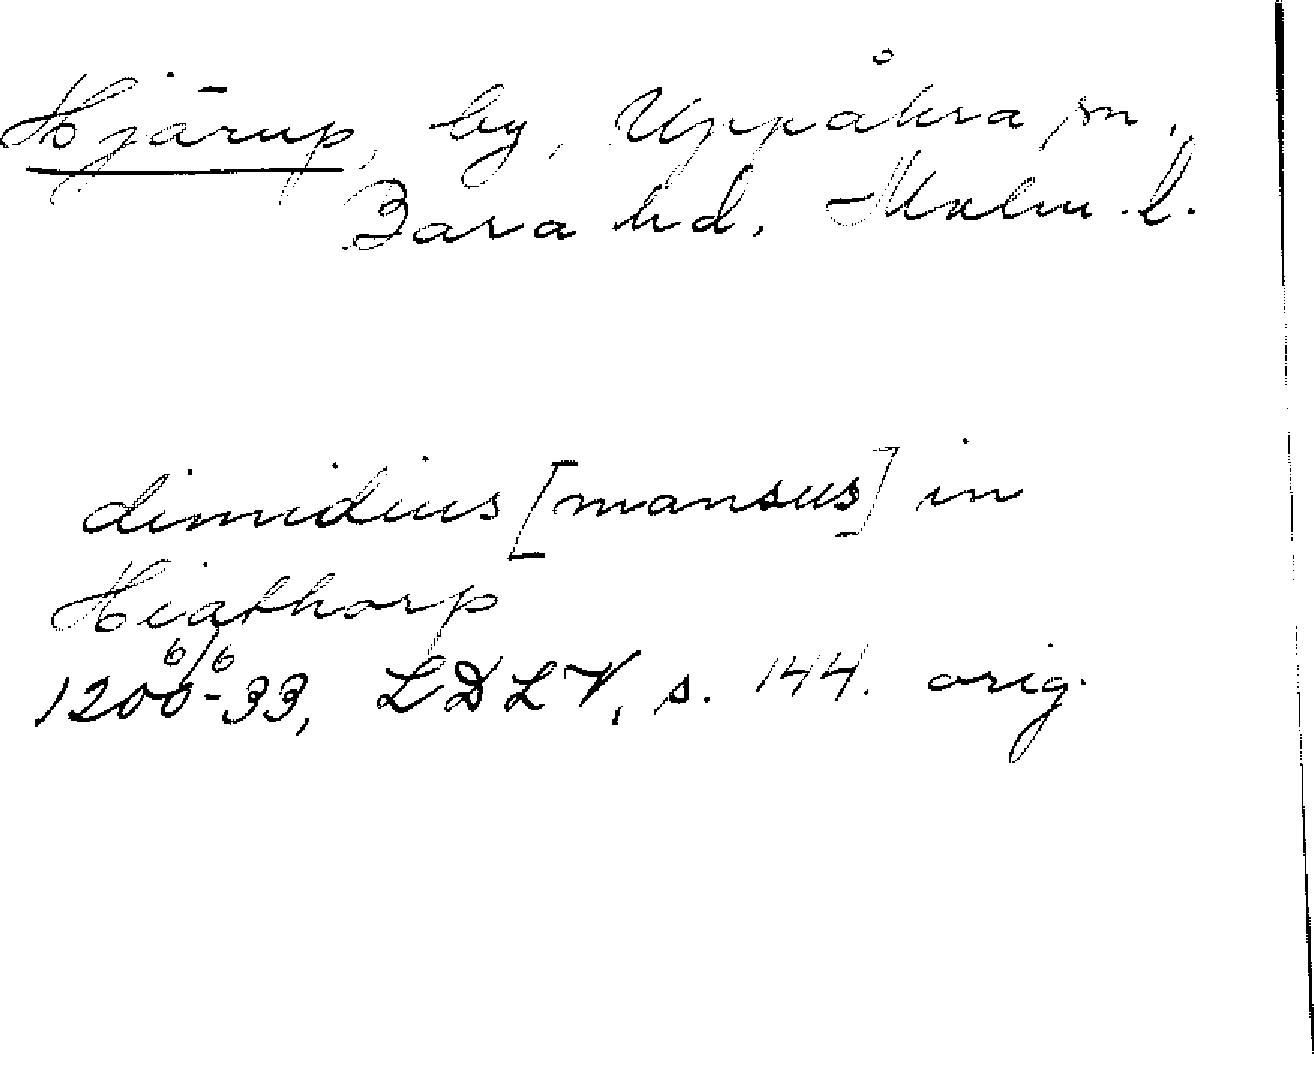 Hjärup, by, Uppåkra sn,
Bara hd, Malm. l.
dimidius [mansus] in
Hiathorp
6/6
1200-33, LDLV, s. 144. orig.